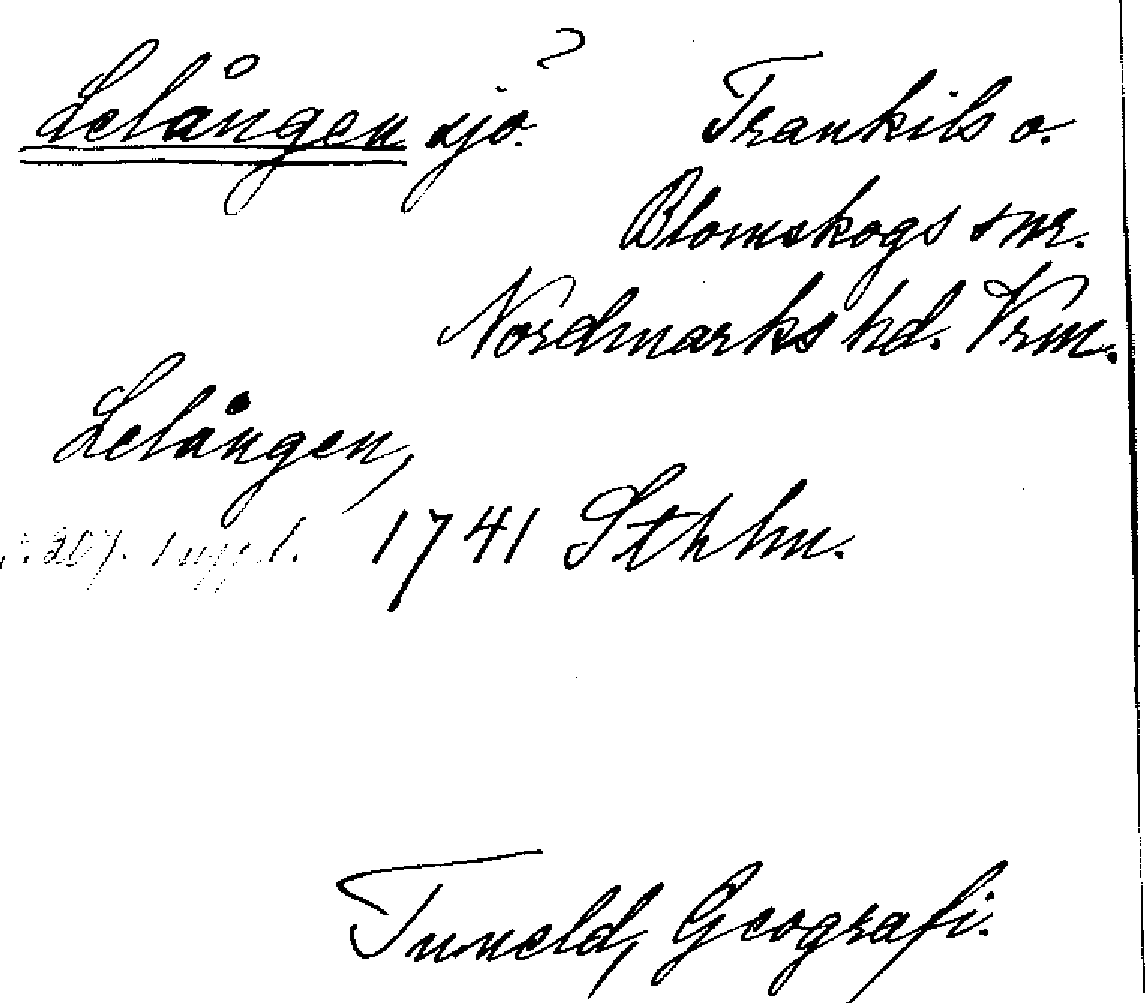 Lelången sjö? Trankils o.
Blomskogs snr.
Nordmarks hd. Vrm.
Lelången,
s. 267. 1 uppl. 1741 Sthlm.
Tuneld, Geografi.